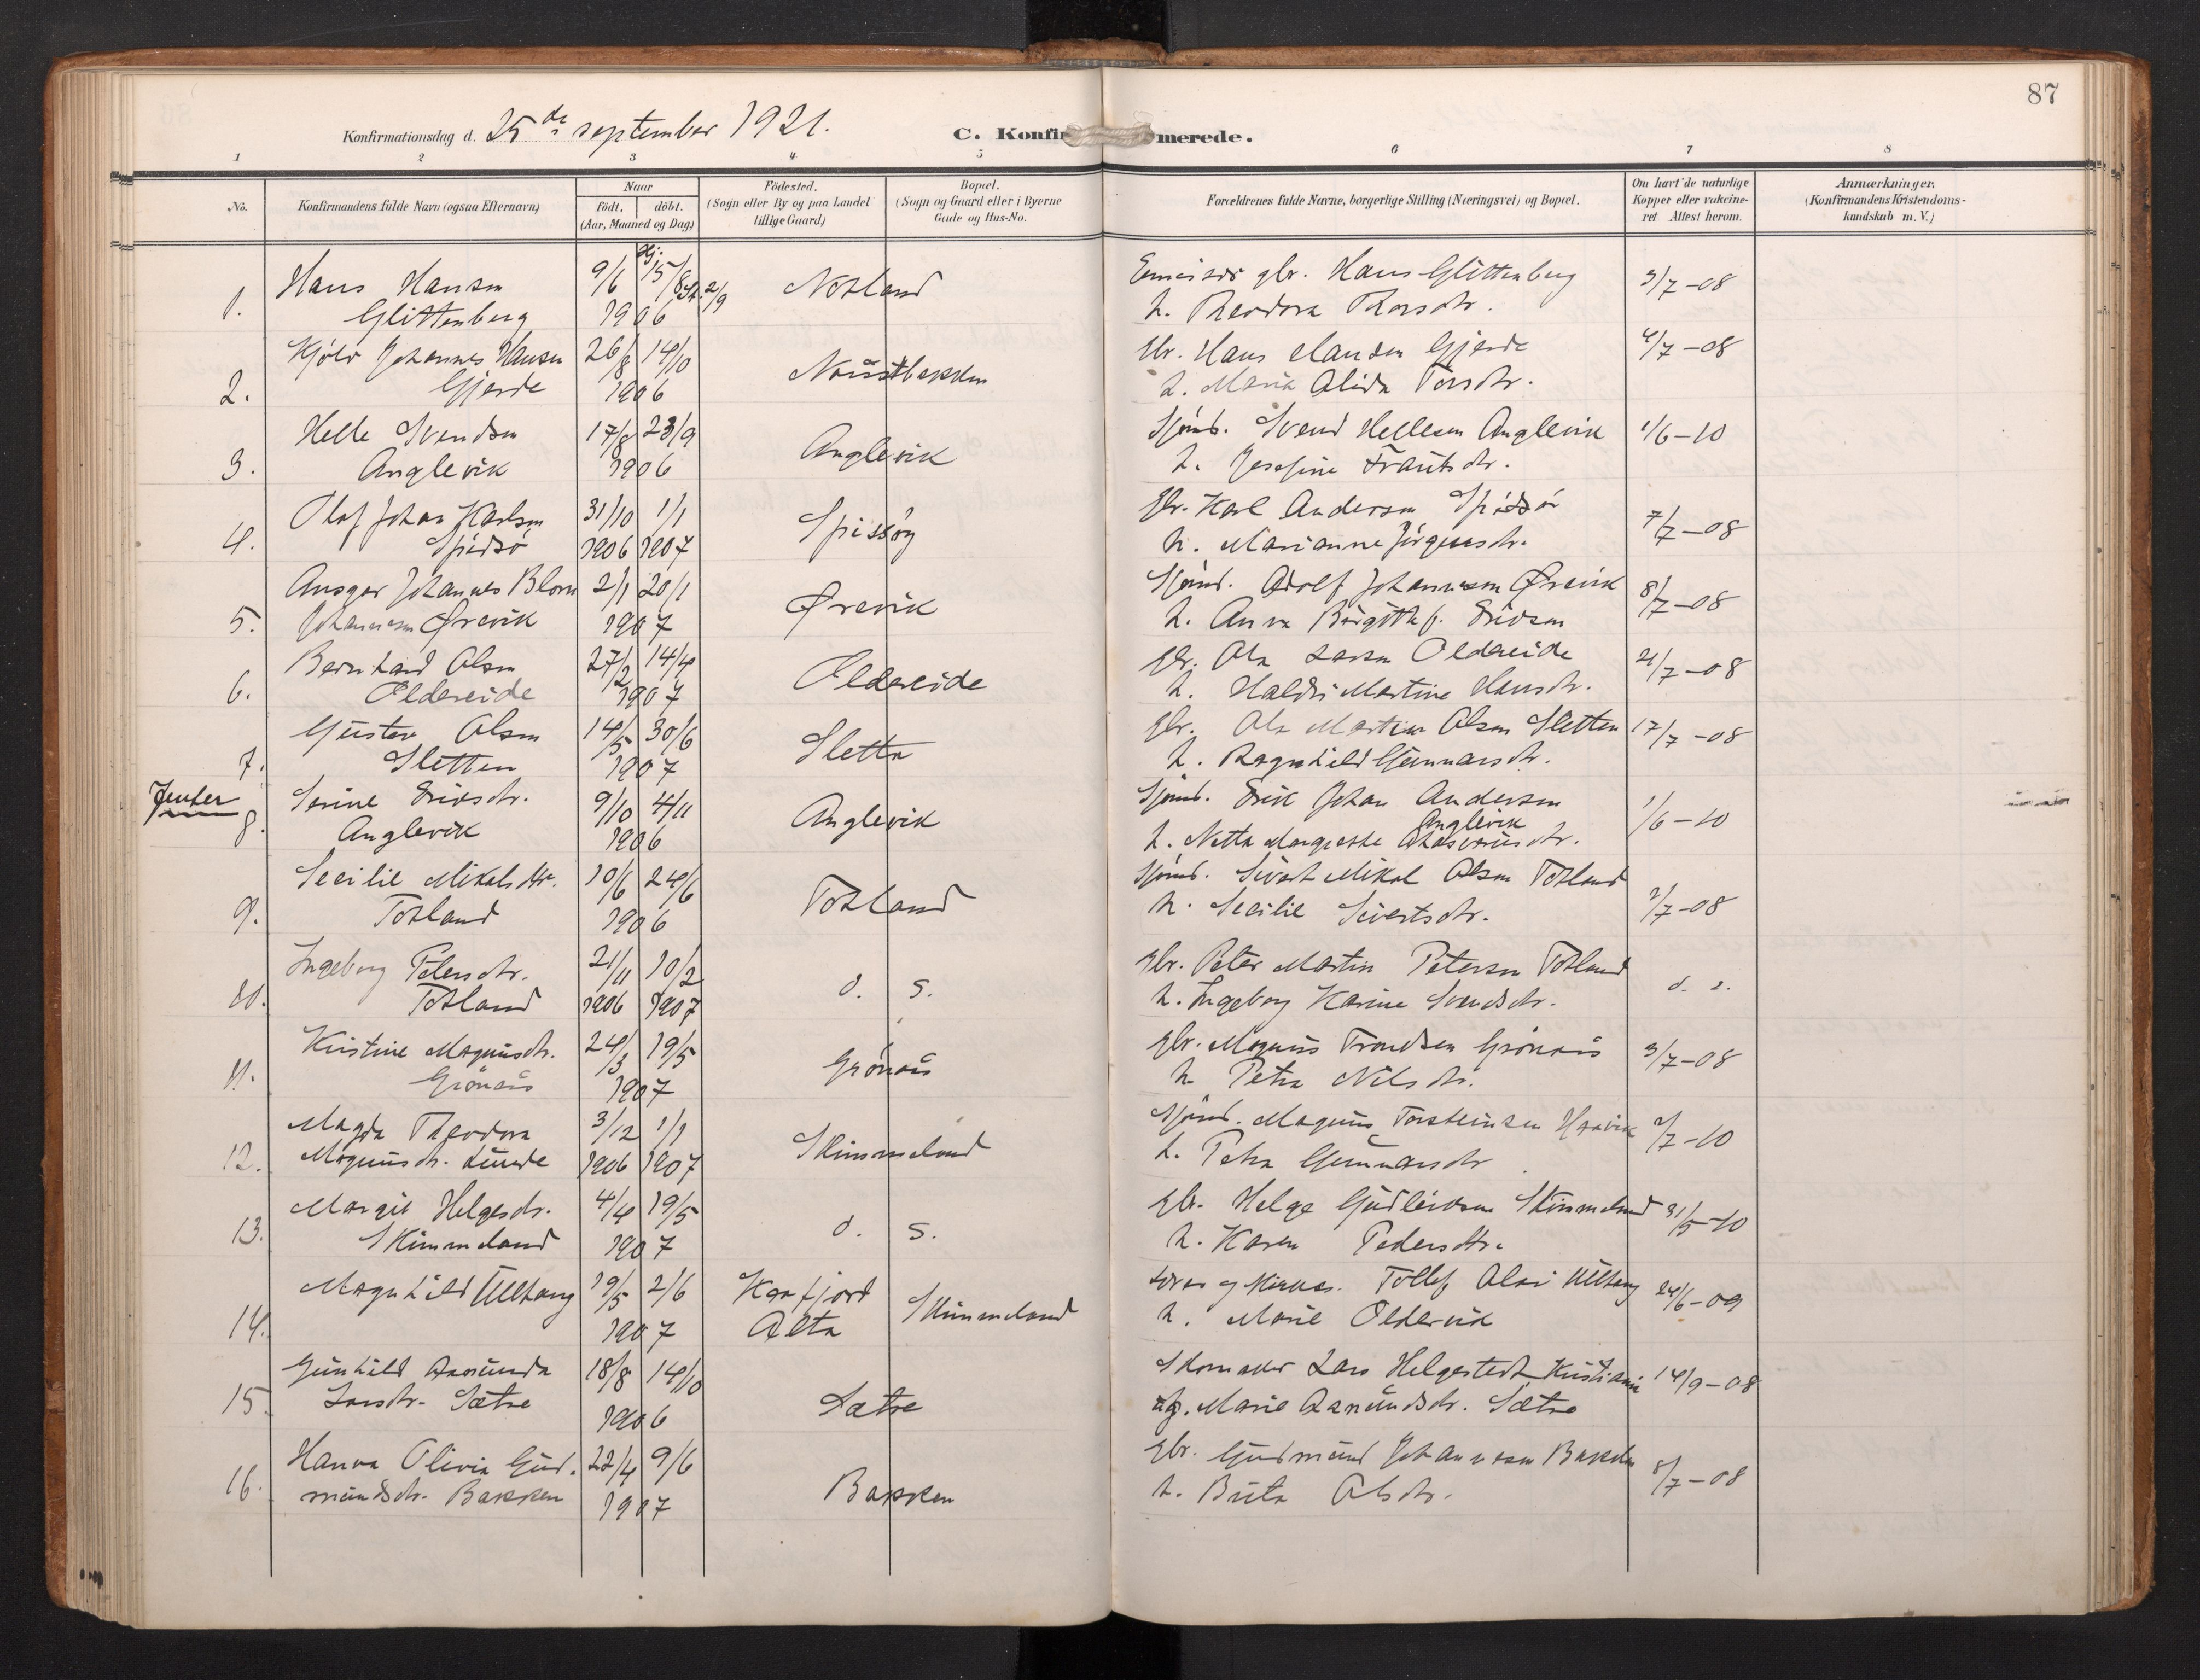 87
Konfirmationsdag d. 25de september 1921.
C. Konfir merede.
1 2 3 4 5 6 7 8
No.
Konfirmandens fulde Navn (ogsaa Efternavn)
Naar
født. døbt.
(Aar, Maaned og Dag)
Fødested.
(Sogn eller By og paa Landet
tillige Gaard)
Bopæl.
(Sogn og Gaard eller i Byerne
Gade og Hus-No.
Forældrenes fulde Navne, borgerlige Stilling (Næringsvei) og Bopæl.
Om havt de naturlige
Kopper eller vakcine-
ret Attest herom.
Anmærkninger.
(Konfirmandens Kristendoms-
kundskab m. V.)
Hj.
Hans Hansen 9/6 15/8 St. 2/9 Hans Glittenberg 3/7-08
1. Glittenberg 1906 h. Theodora Thorsdtr.
Johannes Hansen 26/8 14/10 gbr. Hans Hansen Gjerde 4/7-08
2. Gjerde 1906 Naustbakken h. Maria Alida Torsdtr.
Helle Svendsen 17/8 23/9 Anglevik Sjømd. Svend Hellesen Anglevik 1/6-10
3. Anglevik 1906 h. Josefine Frantsdtr.
Olaf Johan Karlsen 31/10 1/1 Spissøy gbr. Karl Andersen Spidsø 7/7-08
4. Spidsø 1906 1907 h. Marianne Jørgensdtr.
Ansgar Johannes Blom 2/1 20/1 Ørevik Sjømd. Adolf Johannesen Ørevik 8/7-08
5. Johannesen Ørevik 1907 h. Anna Birgitte f.
Bernhard Olsen 27/2 14/4 Oldereide gbr. Ola Larsen Oldereide 21/7-08
6. Oldereide 1907 h. Martine Hansdtr.
Gustav Olsen 14/5 30/6 Sletta gbr. Ola Martin Olsen Sletten 17/7-08
7. Sletten 1907 h. Ragnhild Gunnarsdtr.
Jenter
Serine Eriksdtr. 9/10 4/11 Anglevik Sjømd. Erik Johan Andersen 1/6-10
Anglevik
8. Anglevik 1906 h. Netta Margrethe Ahasverusdtr.
Secilie Mikalsdtr. 10/6 24/6 Totland Sjømd. Sivert Mikal Olsen Totland 2/7-08
9. Totland 1906 h. Secilie Sivertsdtr.
Ingeborg Petersdtr. 21/11 10/2 d. s. gbr. Peter Martin Petersen Totland d. s.
10. Totland 1906 1907 h. Ingeborg Karine Svendsdtr.
Kristine Magnusdtr. 24/3 19/5 Grønaas gbr. Magnus Trondsen Grønaas 3/7-08
11. Grønaas 1907 h. Petra Nilsdtr.
Magda Theodora 3/12 1/1 Skimmeland Sjømd. Magnus Torsteinsen Haavik 2/7-10
12. Magnusdtr. Lunde 1906 1907 h. Petra Gunnarsdtr
Margit Helgesdtr. 4/4 19/5 d. s. gbr. Helge Gudleiksen Skimmeland 31/5-10
13. Skimmeland 1907 h. Karen Pedersdtr.
Magnhild Ulltang 19/5 2/6 Kaafjord Skimmeland lærer og kirkes. Tollef Olai Ulltang 24/6-09
14. 1907 Alta h. Marie Oldervik
Gunhild Aamunda 18/8 14/10 Sætre Skomaker Lars Helgestedt Kristiania 14/9-08
15. Larsdtr. Sætre 1906 og. Marie Aamundsdtr. Sætre
Hanna Olivia Gud- 22/4 9/6 Bakken gbr. Gudmund Johannesen Bakken 8/7-08
16. mundsdtr. Bakken 1907 h. Brita Olsdtr.